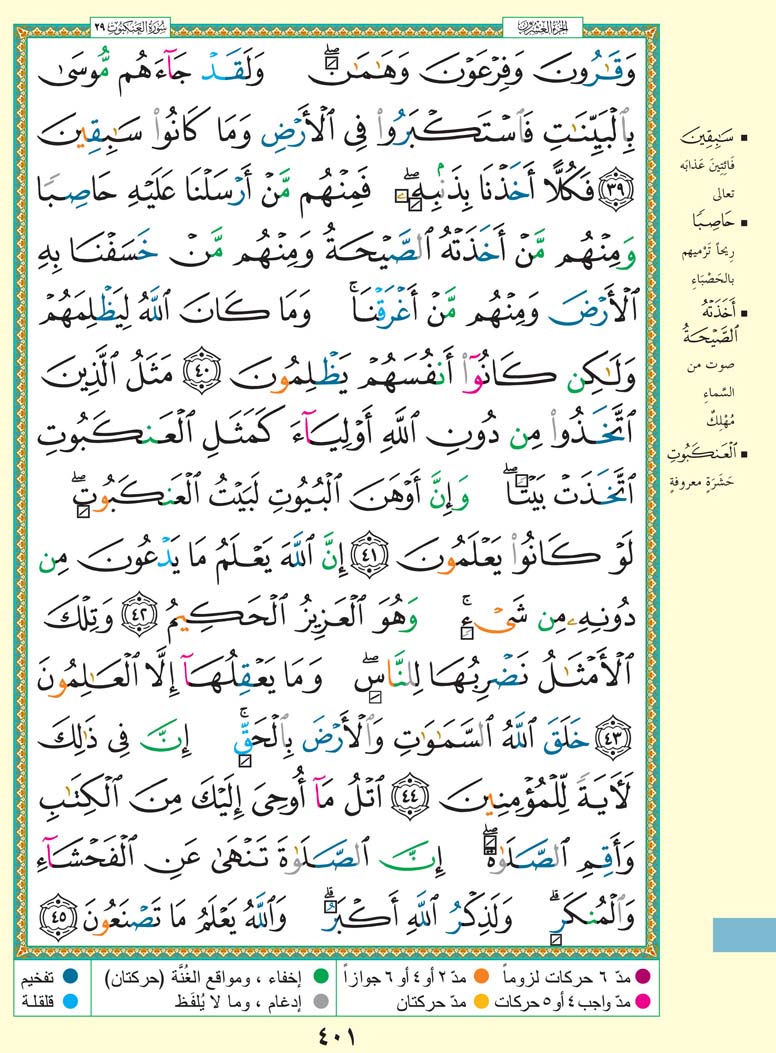 الجزء العشرون
سورة العنكبوت ٢٩
وَقَٰرُونَ وَفِرْعَوْنَ وَهَٰمَٰنَۖ وَلَقَدْ جَآءَهُم مُّوسَىٰ
بِٱلْبَيِّنَٰتِ فَٱسْتَكْبَرُوا۟ فِى ٱلْأَرْضِ وَمَا كَانُوا۟ سَٰبِقِينَ
﴿٣٩﴾ فَكُلًّا أَخَذْنَا بِذَنۢبِهِۦۖ فَمِنْهُم مَّنْ أَرْسَلْنَا عَلَيْهِ حَاصِبًا
وَمِنْهُم مَّنْ أَخَذَتْهُ ٱلصَّيْحَةُ وَمِنْهُم مَّنْ خَسَفْنَا بِهِ
ٱلْأَرْضَ وَمِنْهُم مَّنْ أَغْرَقْنَاۚ وَمَا كَانَ ٱللَّهُ لِيَظْلِمَهُمْ
وَلَٰكِن كَانُوٓا۟ أَنفُسَهُمْ يَظْلِمُونَ ﴿٤٠﴾ مَثَلُ ٱلَّذِينَ
ٱتَّخَذُوا۟ مِن دُونِ ٱللَّهِ أَوْلِيَآءَ كَمَثَلِ ٱلْعَنكَبُوتِ
ٱتَّخَذَتْ بَيْتًاۖ وَإِنَّ أَوْهَنَ ٱلْبُيُوتِ لَبَيْتُ ٱلْعَنكَبُوتِۖ
لَوْ كَانُوا۟ يَعْلَمُونَ ﴿٤١﴾ إِنَّ ٱللَّهَ يَعْلَمُ مَا يَدْعُونَ مِن
دُونِهِۦ مِن شَىْءٍۚ وَهُوَ ٱلْعَزِيزُ ٱلْحَكِيمُ ﴿٤٢﴾ وَتِلْكَ
ٱلْأَمْثَٰلُ نَضْرِبُهَا لِلنَّاسِۖ وَمَا يَعْقِلُهَآ إِلَّا ٱلْعَٰلِمُونَ
﴿٤٣﴾ خَلَقَ ٱللَّهُ ٱلسَّمَٰوَٰتِ وَٱلْأَرْضَ بِٱلْحَقِّۚ إِنَّ فِى ذَٰلِكَ
لَءَايَةً لِّلْمُؤْمِنِينَ ﴿٤٤﴾ ٱتْلُ مَآ أُوحِىَ إِلَيْكَ مِنَ ٱلْكِتَٰبِ
وَأَقِمِ ٱلصَّلَوٰةَۖ إِنَّ ٱلصَّلَوٰةَ تَنْهَىٰ عَنِ ٱلْفَحْشَآءِ
وَٱلْمُنكَرِۗ وَلَذِكْرُ ٱللَّهِ أَكْبَرُۗ وَٱللَّهُ يَعْلَمُ مَا تَصْنَعُونَ ﴿٤٥﴾
سَٰبِقِينَ
فَائِتِينَ عَذابَه
تعالى
حَاصِبًا
رِيحاً تَرْمِيهم
بالحَصْبَاءِ
أَخَذَتْهُ
ٱلصَّيْحَةُ
صوت من
السَّماءِ
مُهْلِكٌ
ٱلْعَنكَبُوتِ
حَشَرَةٍ معروفةٍ
مدّ ٦ حركات لزوماً
مدّ ٢ أو ٤ أو ٦ جوازاً
إخفاء ، ومواقع الغُنَّة (حركتان)
تفخيم
مدّ واجب ٤ أو ٥ حركات
مدّ حركتان
إدغام ، وما لا يُلفَظ
قلقلة
٤٠١